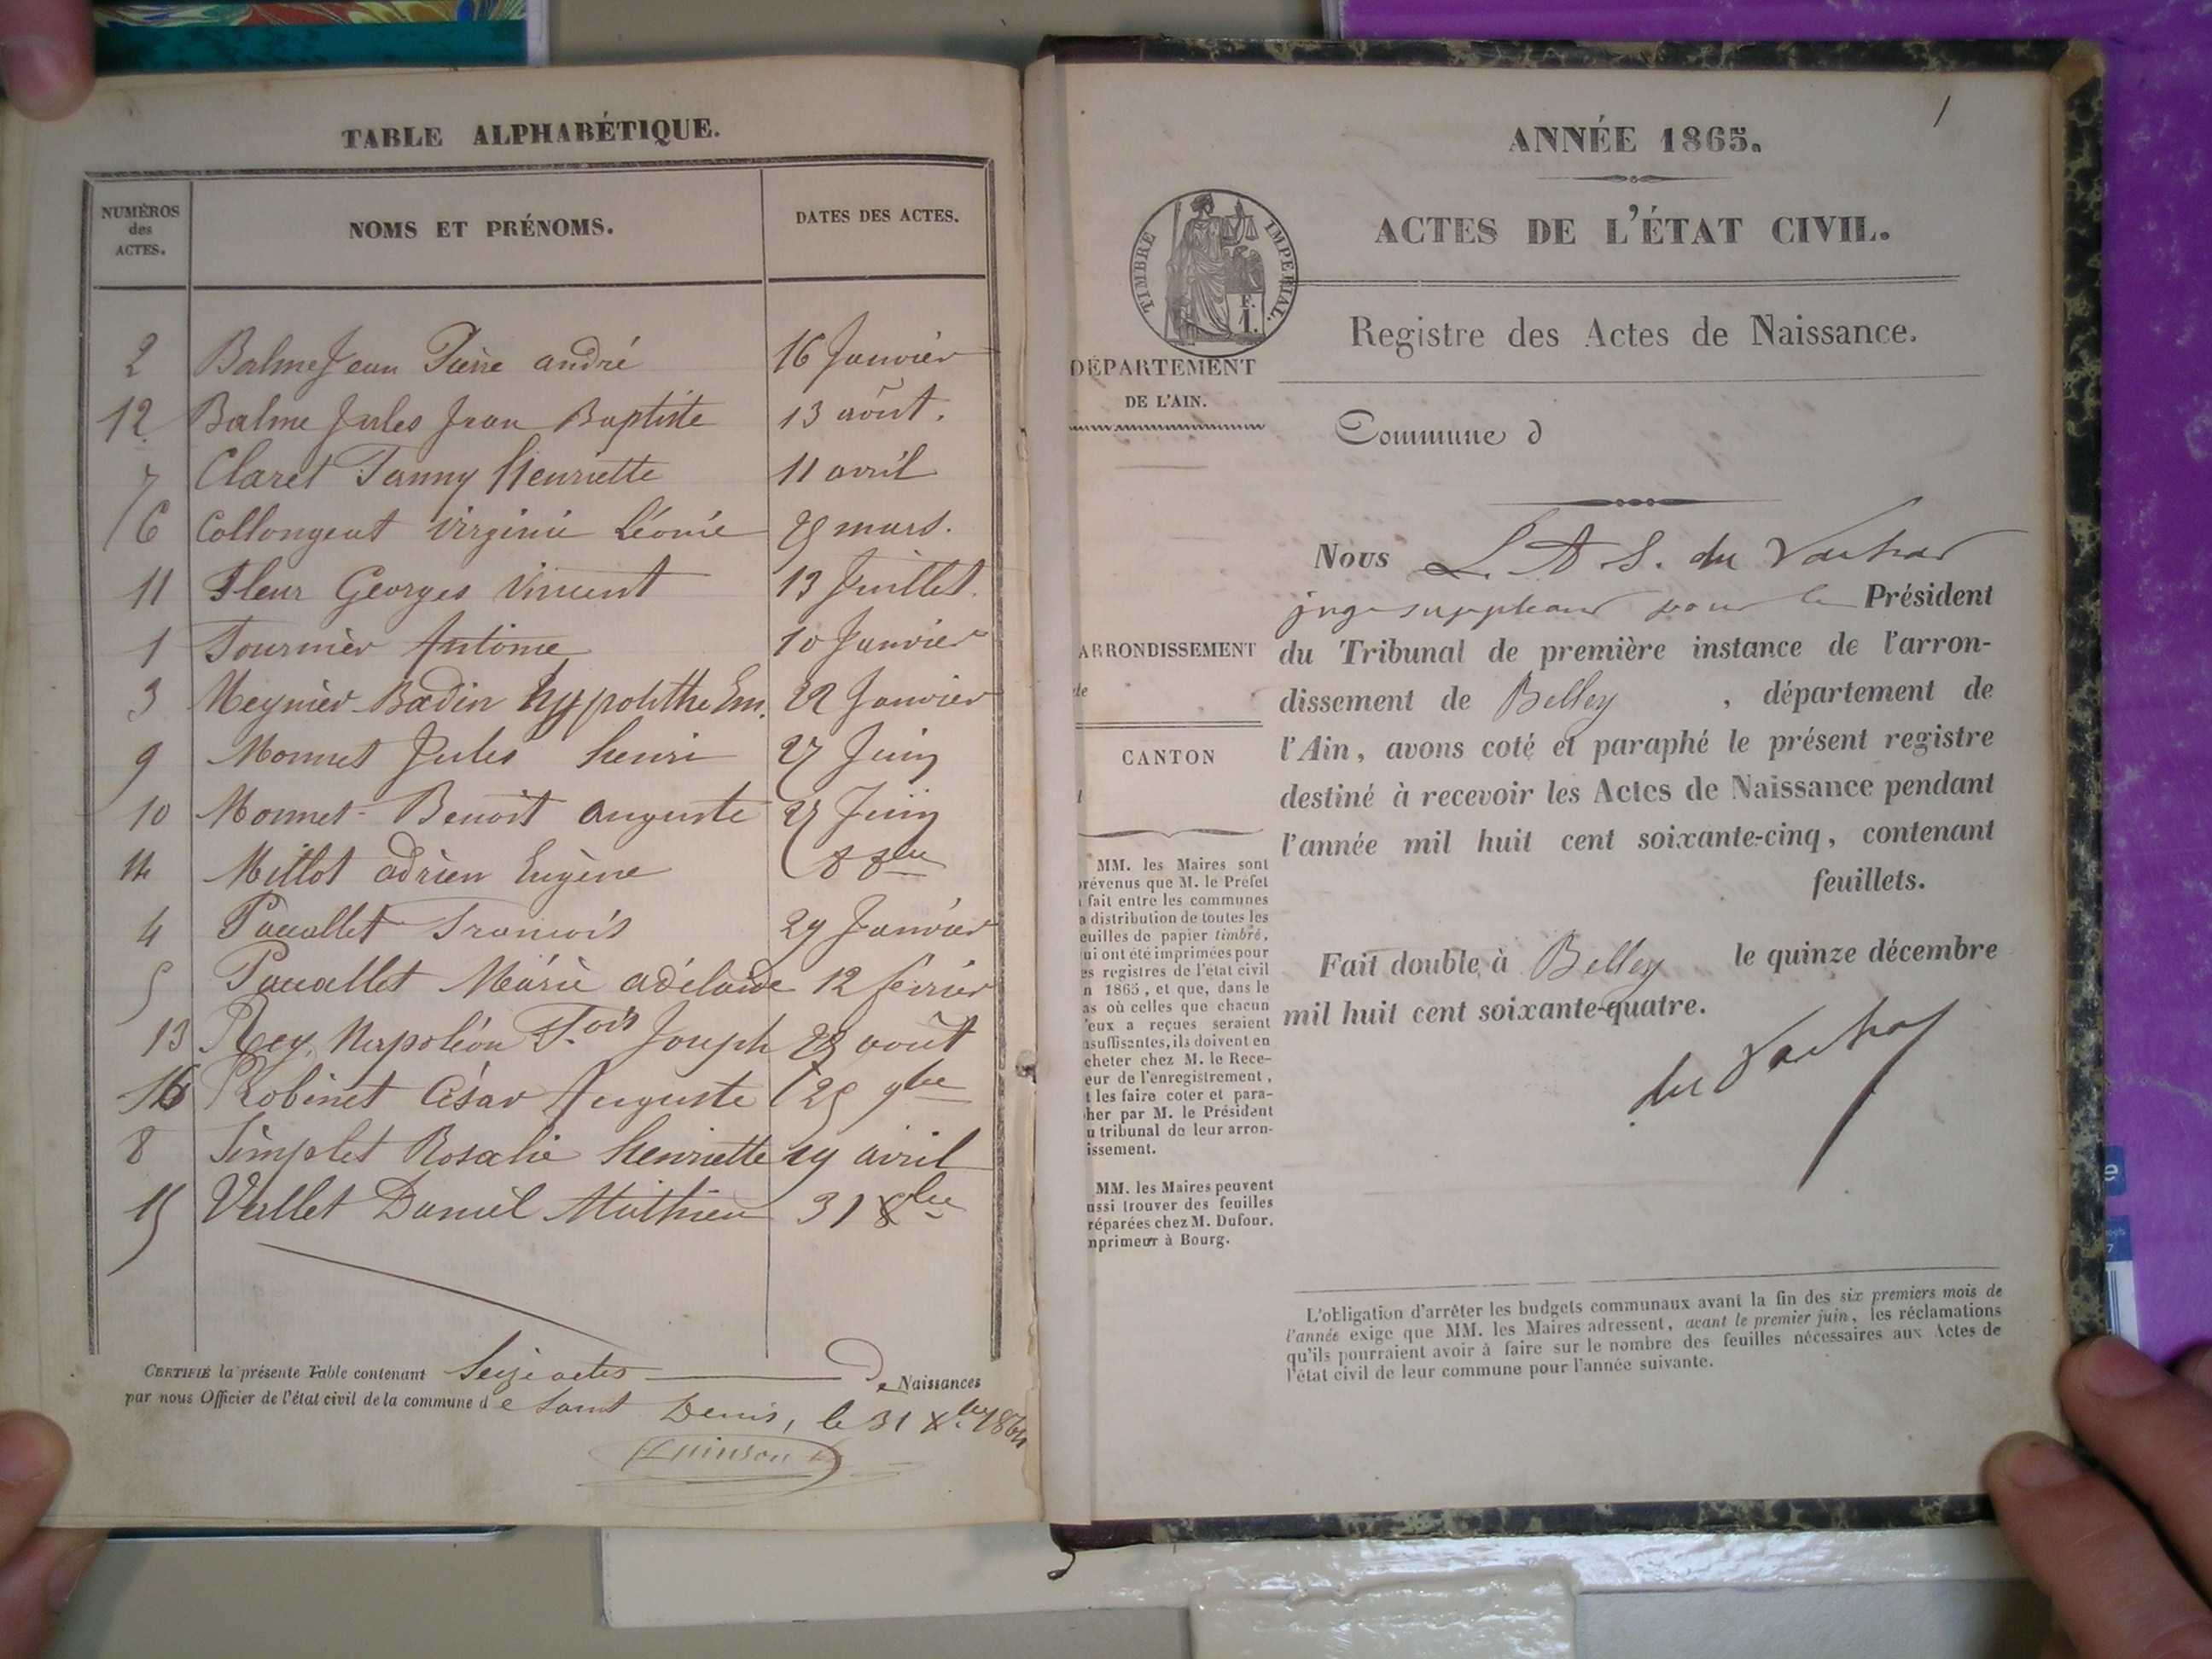 TABLE ALPHABÉTIQUE.
NUMÉROS
des
ACTES.
NOMS ET PRÉNOMS.
DATES DES ACTES.
2 Balme Jean Pierre andré 16 Janvier
12 Balme Jules Jean Baptiste 13 août.
7 Claret Fanny Henriette 11 avril
6 Collongeat Virginie Léonie 28 mars.
11 Fleur Georges Vincent 13 Juillet.
1 Fournier Antoine 10 Janvier
3 Meynier-Badin hyppolithe Em. 22 Janvier
9 Monnet Jules henri 27 Juin
10 Monnet- Benoît auguste 27 Juin
14 Millot adrien Eugène 8 8bre
4 Pauallet François 29 Janvier
5 Pauallet Marie adélaïde 12 février
13 Rey Napoléon F.ois Joseph 28 août
16 Robinet César Auguste 25 9bre
8 Simplet Rosalie henriette 19 avril
15 Vallet Daniel Mathieu 31 8bre
CERTIFIÉ la présente Table contenant Seize actes De Naissances
par nous Officier de l'état civil de la commune de Saint Denis, le 31 Xbre 1864
Quinson
1
ANNÉE 1865.
ACTES DE L'ÉTAT CIVIL.
TIMBRE IMPÉRIAL.
F.
1.
Registre des Actes de Naissance.
DÉPARTEMENT
DE L'AIN.
Commune d
Nous L. A. S. du Vachat
juge suppléant pour le Président
du Tribunal de première instance de l'arron-
dissement de Belley , département de
l'Ain, avons coté et paraphé le présent registre
destiné à recevoir les Actes de Naissance pendant
l'année mil huit cent soixante-cinq, contenant
feuillets.
Fait double à Belley le quinze décembre
mil huit cent soixante-quatre.
du Vachat
ARRONDISSEMENT
de
CANTON
MM. les Maires sont
révenus que M. le Préfet
fait entre les communes
a distribution de toutes les
euilles de papier timbré,
ui ont été imprimées pour
es registres de l'état civil
n 1865, et que, dans le
as où celles que chacun
'eux a reçues seraient
nsuffisantes, ils doivent en
cheter chez M. le Rece-
eur de l'enregistrement,
t les faire coter et para-
her par M. le Président
u tribunal de leur arron-
issement.
MM. les Maires peuvent
ussi trouver des feuilles
réparées chez M. Dufour,
mprimeur à Bourg.
L'obligation d'arrêter les budgets communaux avant la fin des six premiers mois de
l'année exige que MM. les Maires adressent, avant le premier juin, les réclamations
qu'ils pourraient avoir à faire sur le nombre des feuilles nécessaires aux Actes de
l'état civil de leur commune pour l'année suivante.